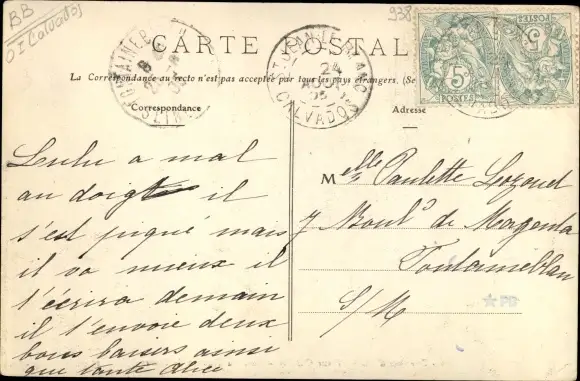 BB
(Calvados)
938
CARTE POSTALE
La Correspondance au recto n'est pas acceptée par tous les pays étrangers. (Se
Correspondance
Adresse
24
AOUT
05
CALVADOS
5c
POSTES
5c
POSTES
Lulu a mal
au doigt il
s'est piqué mais
il va mieux il
t'écrira demain
il t'envoie deux
bons baisers ainsi
que tante Alice
Melle Paulette
7 Boulд de Magenta
Fontainebleau
S/M
PB